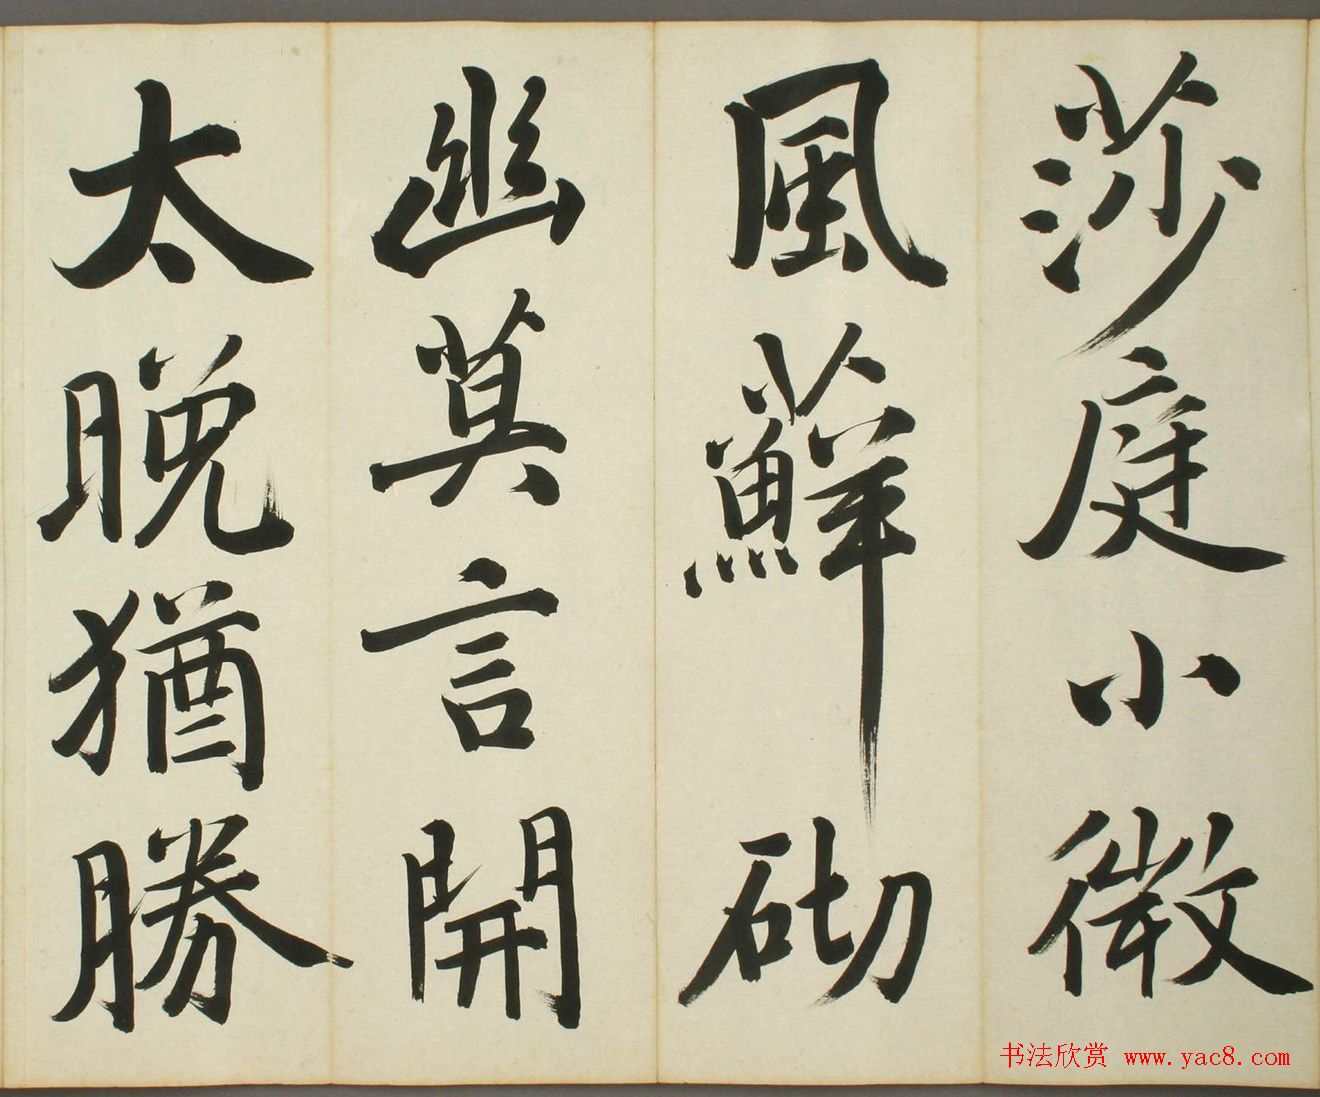 莎庭小微
風蘚砌
幽莫言開
太晚猶勝
书法欣赏 www.yac8.com